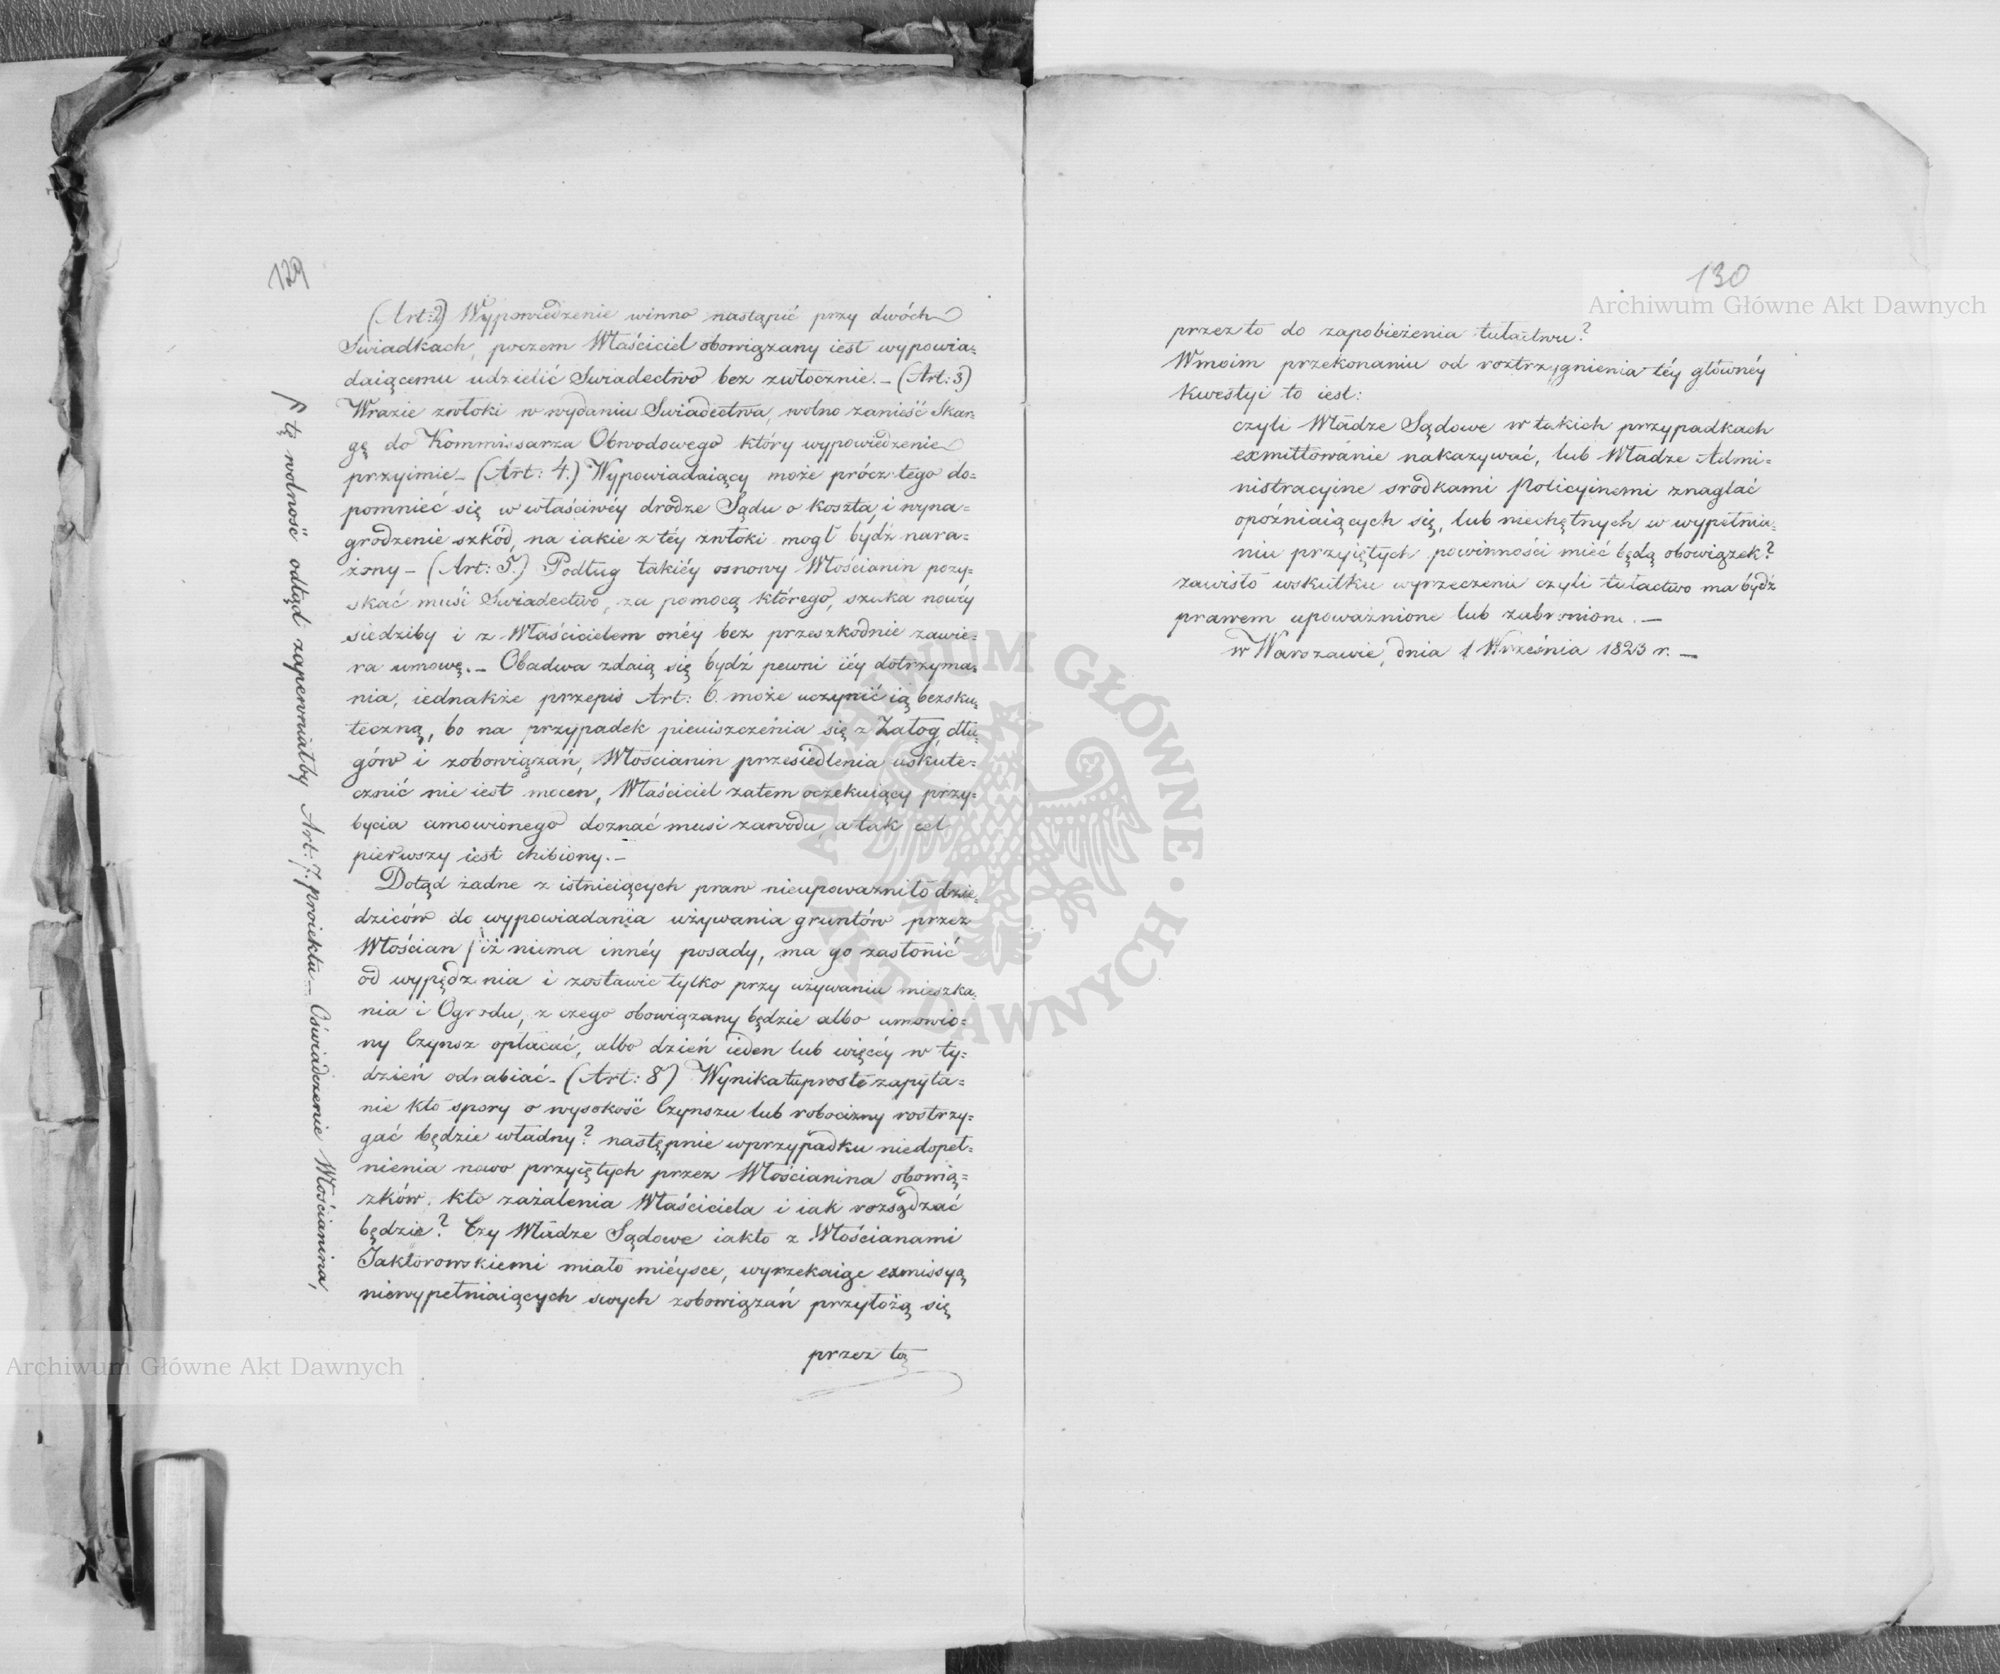 129
(Art: 2) Wypowiedzenie winno nastąpić przy dwóch
Swiadkach, poczem Właściciel obowiązany iest wypowia=
daiącemu udzielić Swiadectwo bez zwłocznie. – (Art: 3)
Wrazie zwłoki w wydaniu Swiadectwa, wolno zanieść Skar=
gę do Kommissarza Obwodowego który wypowiedzenie
przyimie – (Art: 4.) Wypowiadaiący może prócz tego do=
pomnieć się w właściwéy drodze Sądu o koszta, i wyna=
grodzenie szkód, na iakie z téy zwłoki mogł bydź nara=
żony – (Art: 5.) Podług takiéy osnowy Włościanin pozy=
skać musi Swiadectwo, za pomocą którego, szuka nowéy
siedziby i z Właścicielem onéy bez przeszkodnie zawie=
ra umowę. – Obadwa zdaią się bydź pewni iéy dotrzyma=
nia, iednakże przepis Art: 6. może uczynić ią bezsku=
teczną, bo na przypadek nieuiszczenia się z Załog, dłu=
gów i zobowiązań, Włościanin przesiedlenia uskute=
cznić nie iest mocen, Właściciel zatem oczekuiący przy=
bycia umowionego doznać musi zawodu, a tak cel
pierwszy iest chibiony. –
Dotąd żadne z istnieiących praw nieupoważniło dzie=
dziców do wypowiadania używania gruntów przez
Włościan / iż niema innéy posady, ma go zasłonić
od wypędzenia i zostawic tylko przy używaniu mieszka=
nia i Ogrodu, z czego obowiązany będzie albo umowio=
ny Czynsz opłacać, albo dzień ieden lub więcéy w ty=
dzień odrabiać – (Art: 8) Wynika tu proste zapyta=
nie kto spory o wysokość Czynszu lub robocizny rostrzy=
gać będzie władny? następnie w przypadku niedopeł=
nienia nowo przyiętych przez Włościanina obowią=
zków. kto zażalenia Właściciela i iak rozsądzać
będzie? Czy Władze Sądowe iakto z Włościanami
Jaktorowskiemi miało miéysce, wyrzekaiąc exmissyą
niewypełniaiących swych zobowiązań przyłożą się
przez to
tę wolność odtąd zapewniałby Art: 7. proiektu – Oświadczenie Włościanina,
130
przez to do zapobieżenia tułactwu?
W moim przekonaniu od roztrzygnienia téy głównéy
Kwestyi to iest:
czyli Władze Sądowe w takich przypadkach
exmittowanie nakazywać, lub Władze Admi=
nistracyine srodkami Policyinemi znaglać
opoźniaiących się, lub niechętnych w wypełnia=
niu przyiętych powinności mieć będą obowiązek?
zawisło wskutku wyrzeczenie czyli tułactwo ma bydź
prawem upoważnione lub zabronione. –
w Warszawie, dnia 1 Września 1823 r. –
Archiwum Główne Akt Dawnych
Archiwum Główne Akt Dawnych
ARCHIWUM GŁÓWNE · AKT DAWNYCH ·